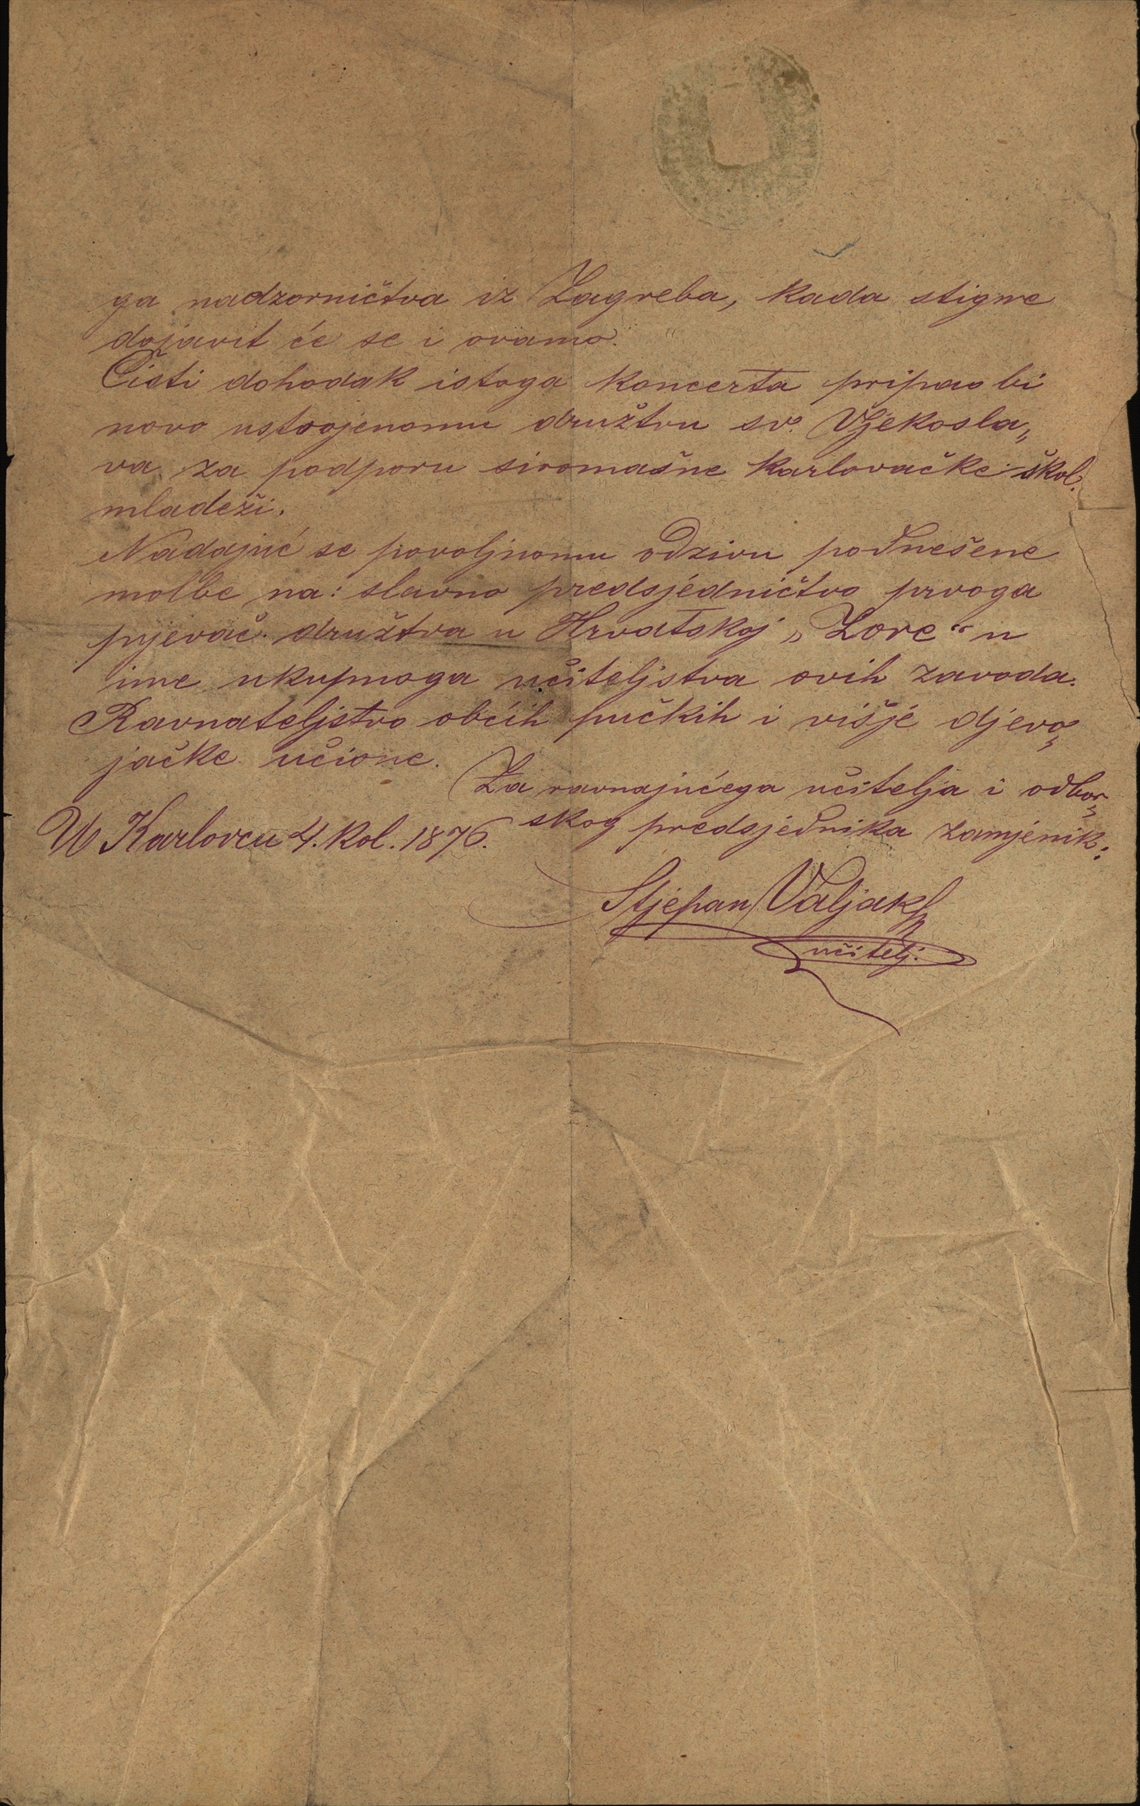 ga nadzorničtva iz Zagreba, kada stigne
dojavit će se i ovamo.
Čisti dohodak istoga koncerta pripao bi
novo ustrojenomu družtvu sv. Vjekosla„
va za podporu siromašne karlovačke škol.
mladeži.
Nadajuć se povoljnomu odzivu podnešene
molbe na: slavno predsjédničtvo prvoga
pjevač. družtva u Hrvatskoj „Zore“ u
ime ukupnoga učiteljstva ovih zavoda.
Ravnateljstvo obćih pučkih i višjé djevo„
jačke učione.
Za ravnajućega učitelja i odbor„
skog predsjednika zamjénik:
U Karlovcu 4. Kol. 1876.
Stjepan Valjak
učitelj.